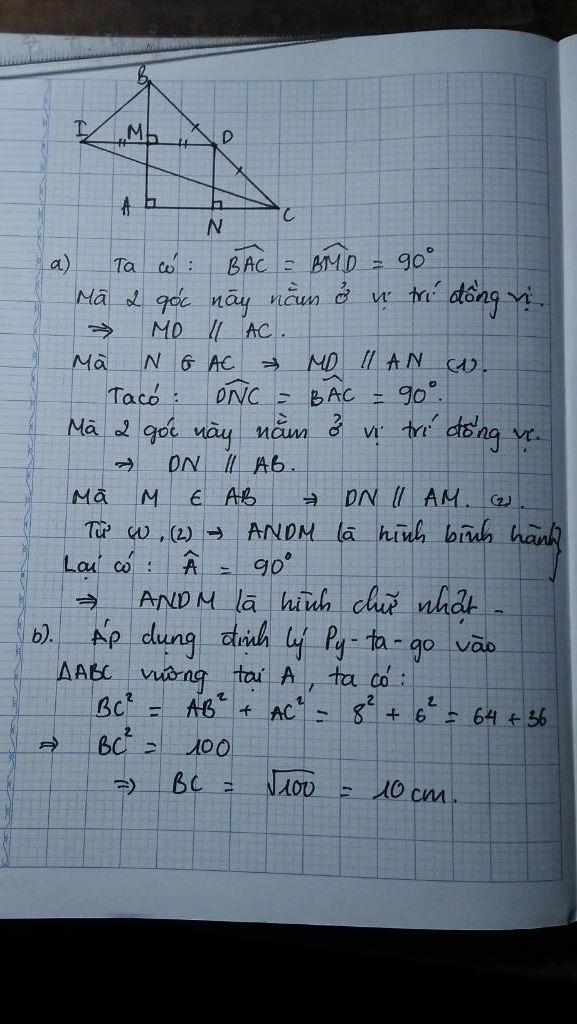 B
I M D
A N C
a) Ta có: BAC = BMD = 90°
Mà 2 góc này nằm ở vị trí đồng vị.
⇒ MD // AC.
Mà N ∈ AC ⇒ MD // AN (1).
Ta có: DNC = BAC = 90°.
Mà 2 góc này nằm ở vị trí đồng vị.
⇒ DN // AB.
Mà M ∈ AB ⇒ DN // AM. (2).
Từ (1), (2) ⇒ ANDM là hình bình hành}
Lại có: Â = 90°
⇒ ANDM là hình chữ nhật -
b). Áp dụng định lý Py-ta-go vào
ΔABC vuông tại A, ta có:
BC² = AB² + AC² = 8² + 6² = 64 + 36
⇒ BC² = 100
⇒ BC = √100 = 10 cm.